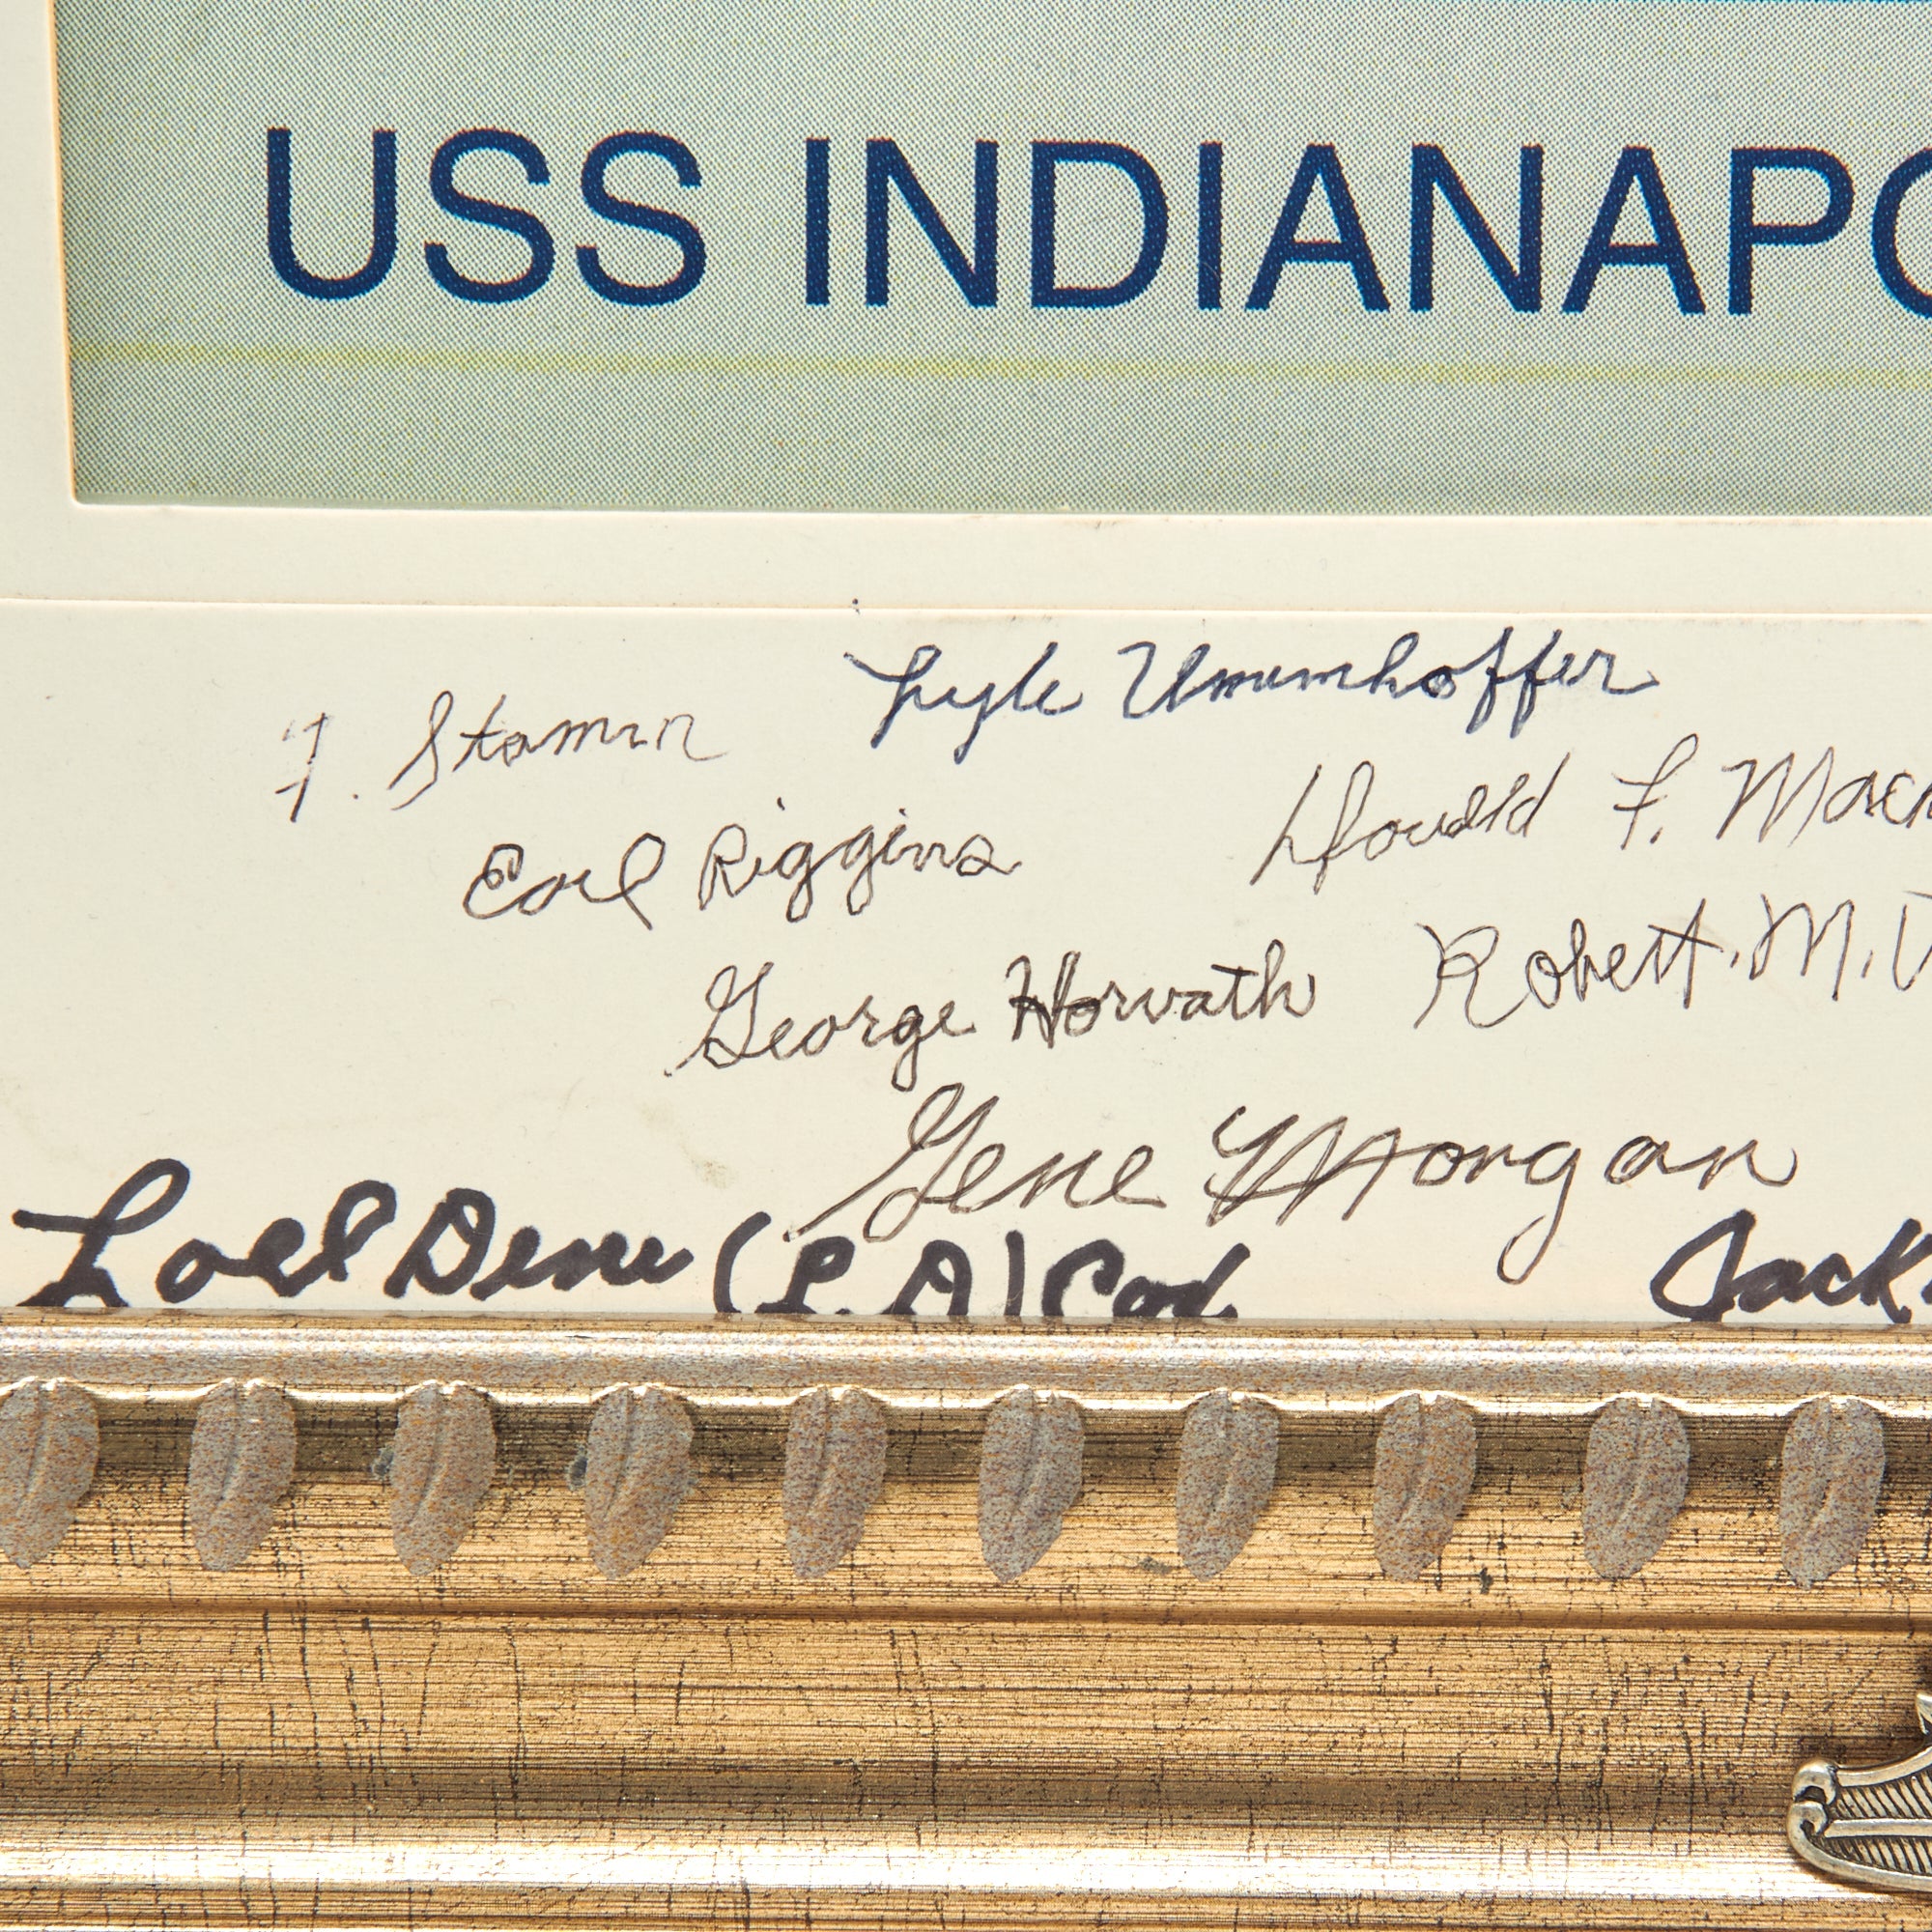 USS INDIANAPO
Lyle Umenhoffer
F. Stamm
Earl Riggins
Donald F. Mack
George Horvath
Robert. M.
Gene Morgan
Loel Dene (L.D) Cox
Jack